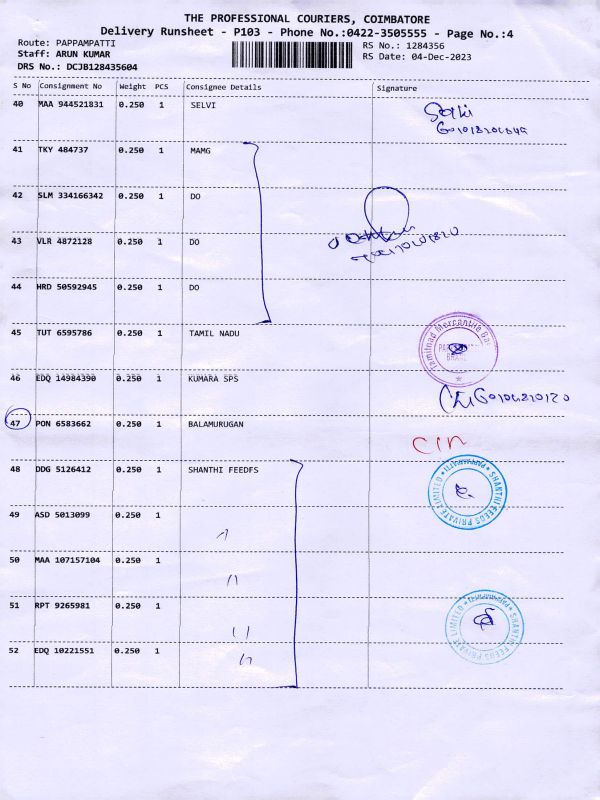 THE PROFESSIONAL COURIERS, COIMBATORE
Delivery Runsheet - P103 - Phone No.:0422-3505555 - Page No.:4
Route: PAPPAMPATTI RS No.: 1284356
Staff: ARUN KUMAR RS Date: 04-Dec-2023
DRS No.: DCJB128435604
S No Consignment No Weight PCS Consignee Details Signature
40 MAA 944521831 0.250 1 SELVI
41 TKY 484737 0.250 1 MAMG
42 SLM 334166342 0.250 1 DO
43 VLR 4872128 0.250 1 DO
44 HRD 50592945 0.250 1 DO
45 TUT 6595786 0.250 1 TAMIL NADU
Tamilnad Mercantile
46 EDQ 14984390 0.250 1 KUMARA SPS
47 PON 6583662 0.250 1 BALAMURUGAN
48 DDG 5126412 0.250 1 SHANTHI FEEDFS
SHANTHI FEEDS PRIVATE LIMITED
49 ASD 5013099 0.250 1
50 MAA 107157104 0.250 1
51 RPT 9265981 0.250 1
SHANTHI FEEDS PRIVATE LIMITED
52 EDQ 10221551 0.250 1